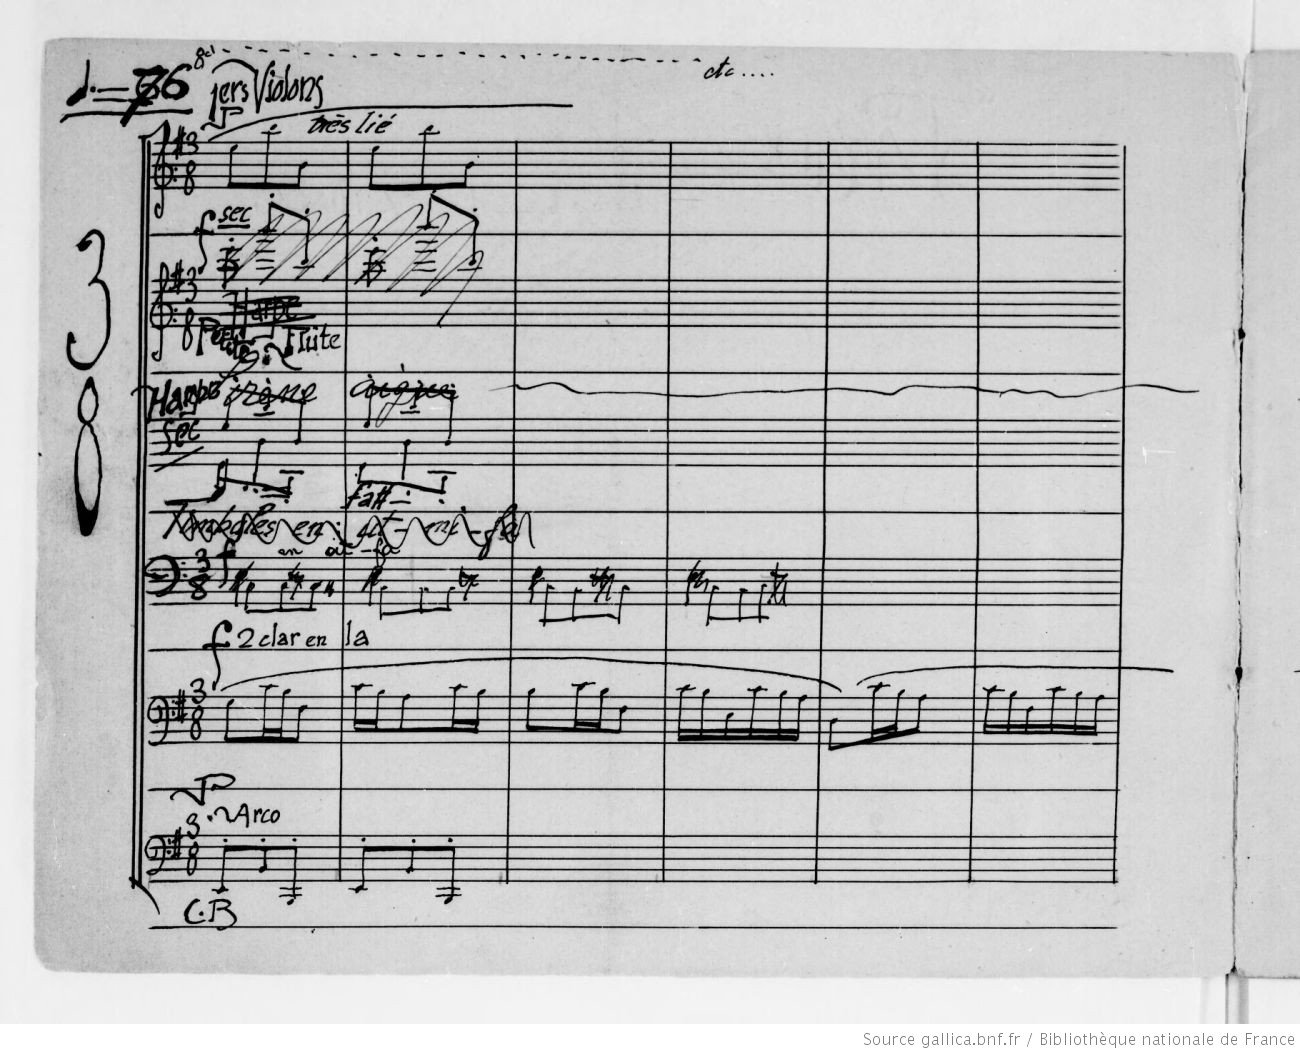 ♩. = 76
8a
etc....
1ers Violons
P
très lié
3
8
f sec
Harpe
Petite Flûte
Harpe
sec
fa#
Timbales en ut - en fa
en ut - fa
f
f 2 clar en la
P
Arco
C.B
Source gallica.bnf.fr / Bibliothèque nationale de France